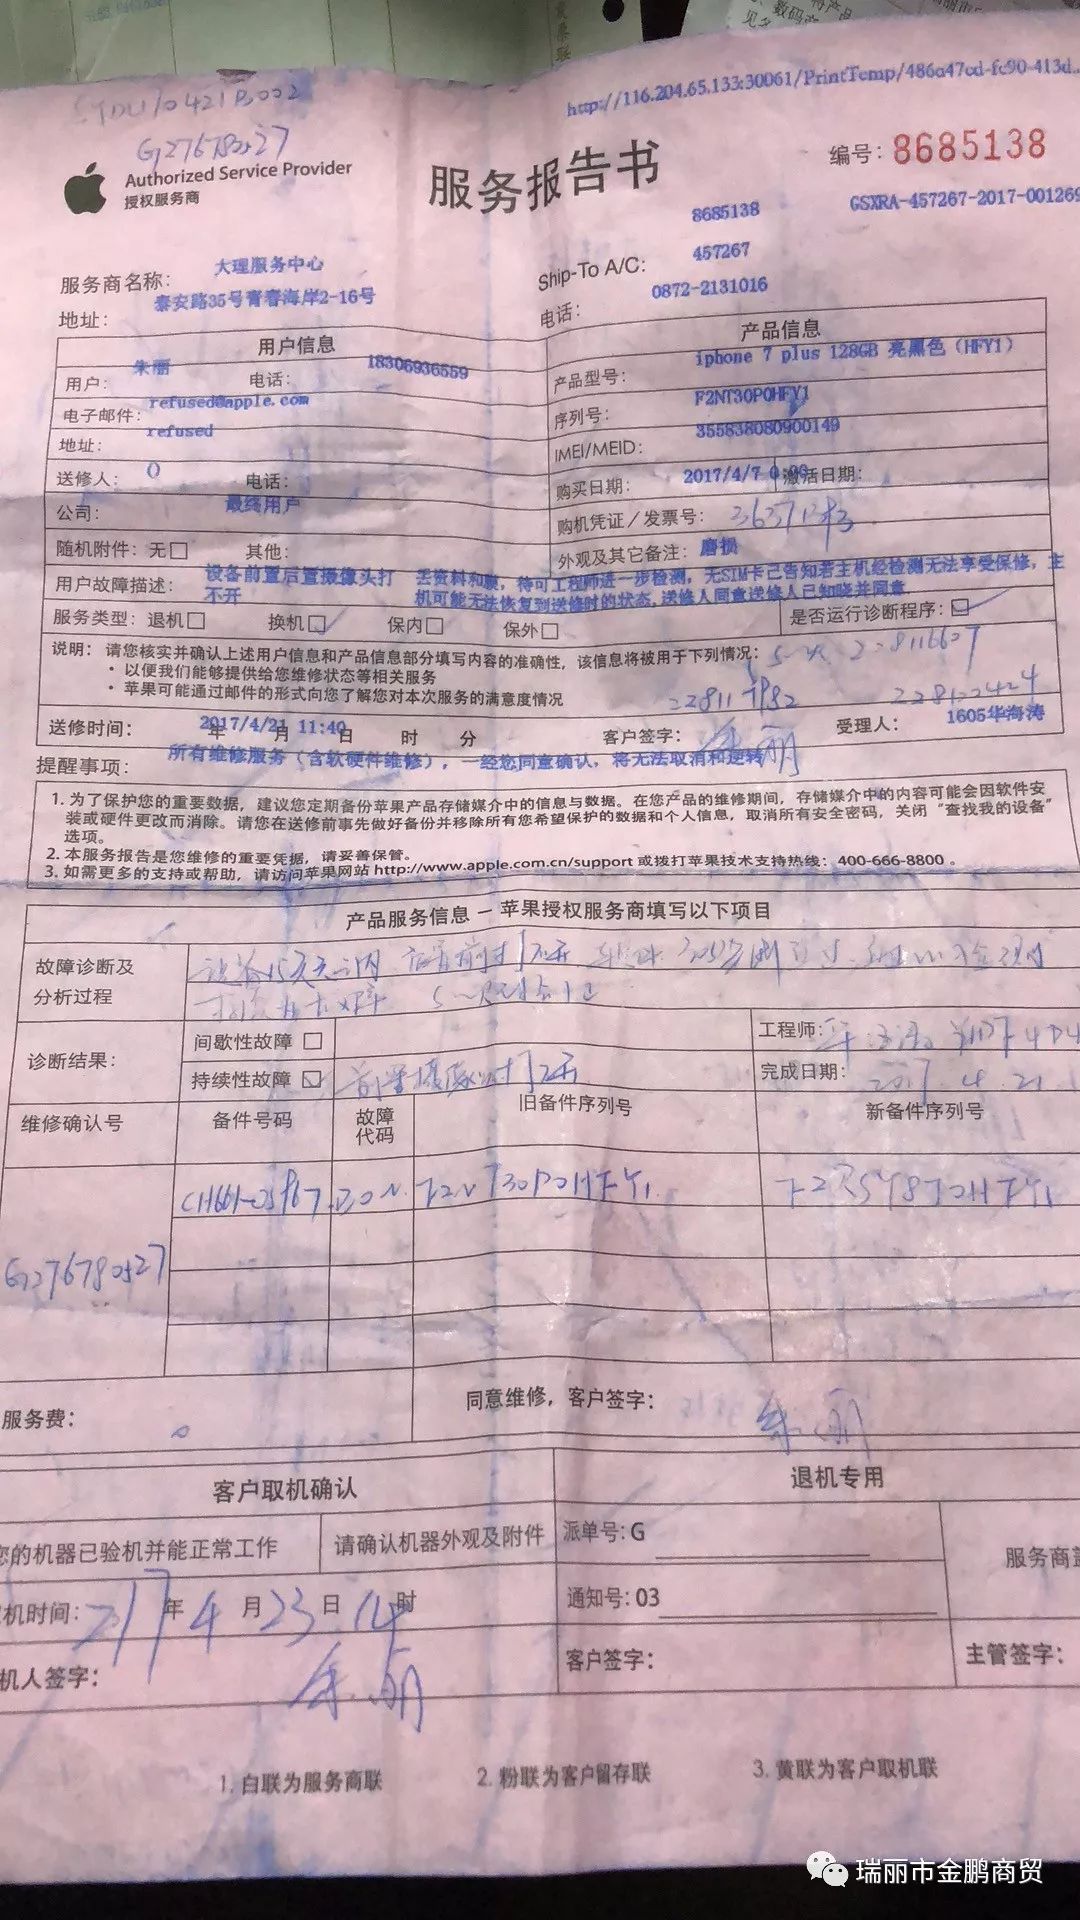 http://116.204.65.133:30061/PrintTemp/486a47cd-fc90-413d...
Authorized Service Provider
授权服务商
服务报告书
编号: 8685138
8685138
GSXRA-457267-2017-001269
服务商名称: 大理服务中心
Ship-To A/C: 457267
地址: 泰安路35号青春海岸2-16号
电话: 0872-2131016
用户信息
产品信息
用户: 朱丽 电话: 18306936559
产品型号: iphone 7 plus 128GB 亮黑色 (HFY1)
电子邮件: refused@apple.com
序列号: F2NT30P0HFY1
地址: refused
IMEI/MEID: 355838080900149
送修人: () 电话:
购买日期: 2017/4/7 0:00 激活日期:
公司: 最终用户
购机凭证/发票号:
随机附件: 无□ 其他:
外观及其它备注: 磨损
用户故障描述: 设备前置后置摄像头打不开
丢资料和膜,待可工程师进一步检测,无SIM卡已告知若主机经检测无法享受保修,主
机可能无法恢复到送修时的状态,送修人同意送修人已知晓并同意.
服务类型: 退机□ 换机□ 保内□ 保外□ 是否运行诊断程序:□
说明: 请您核实并确认上述用户信息和产品信息部分填写内容的准确性,该信息将被用于下列情况:
• 以便我们能够提供给您维修状态等相关服务
• 苹果可能通过邮件的形式向您了解您对本次服务的满意度情况
送修时间: 2017/4/21 11:40 年 月 日 时 分 客户签字: 朱丽 受理人: 1605华海涛
提醒事项: 所有维修服务(含软硬件维修),一经您同意确认,将无法取消和逆转
1. 为了保护您的重要数据,建议您定期备份苹果产品存储媒介中的信息与数据。在您产品的维修期间,存储媒介中的内容可能会因软件安
装或硬件更改而消除。请您在送修前事先做好备份并移除所有您希望保护的数据和个人信息,取消所有安全密码,关闭“查找我的设备”
选项。
2. 本服务报告是您维修的重要凭据,请妥善保管。
3. 如需更多的支持或帮助,请访问苹果网站 http://www.apple.com.cn/support 或拨打苹果技术支持热线: 400-666-8800 。
产品服务信息 – 苹果授权服务商填写以下项目
故障诊断及
分析过程
诊断结果: 间歇性故障 □
工程师:
持续性故障 ☑
完成日期: 2017.4.21
维修确认号 备件号码 故障
代码 旧备件序列号 新备件序列号
F2NT30P0HFY1
G276780527
服务费: 0
同意维修,客户签字: 朱丽
客户取机确认
退机专用
您的机器已验机并能正常工作
请确认机器外观及附件
派单号: G
服务商盖
通知号: 03
机时间: 2017年4月23日14时
客户签字:
主管签字:
机人签字: 朱丽
1. 白联为服务商联
2. 粉联为客户留存联
3. 黄联为客户取机联
瑞丽市金鹏商贸